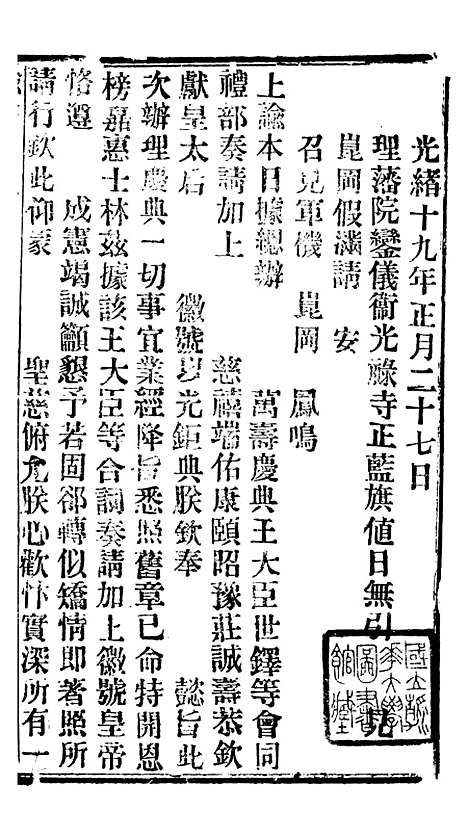 光緒十九年正月二十七日
理藩院鑾儀衞光祿寺正藍旗值日無引　見
崑岡假滿請　安
召見軍機　崑岡　鳳鳴
上諭本日據總辦　萬壽慶典王大臣世鐸等會同
禮部奏請加上　慈禧端佑康頤昭豫莊誠壽恭欽
獻皇太后　徽號以光鉅典朕欽奉　懿旨此
次辦理慶典一切事宜業經降旨悉照舊章已命特開恩
榜嘉惠士林茲據該王大臣等合詞奏請加上徽號皇帝
恪遵　成憲竭誠籲懇予若固卻轉似矯情即著照所
請行欽此仰蒙　聖慈俯允朕心歡忭實深所有一
國立清
華大學
圖書
館藏